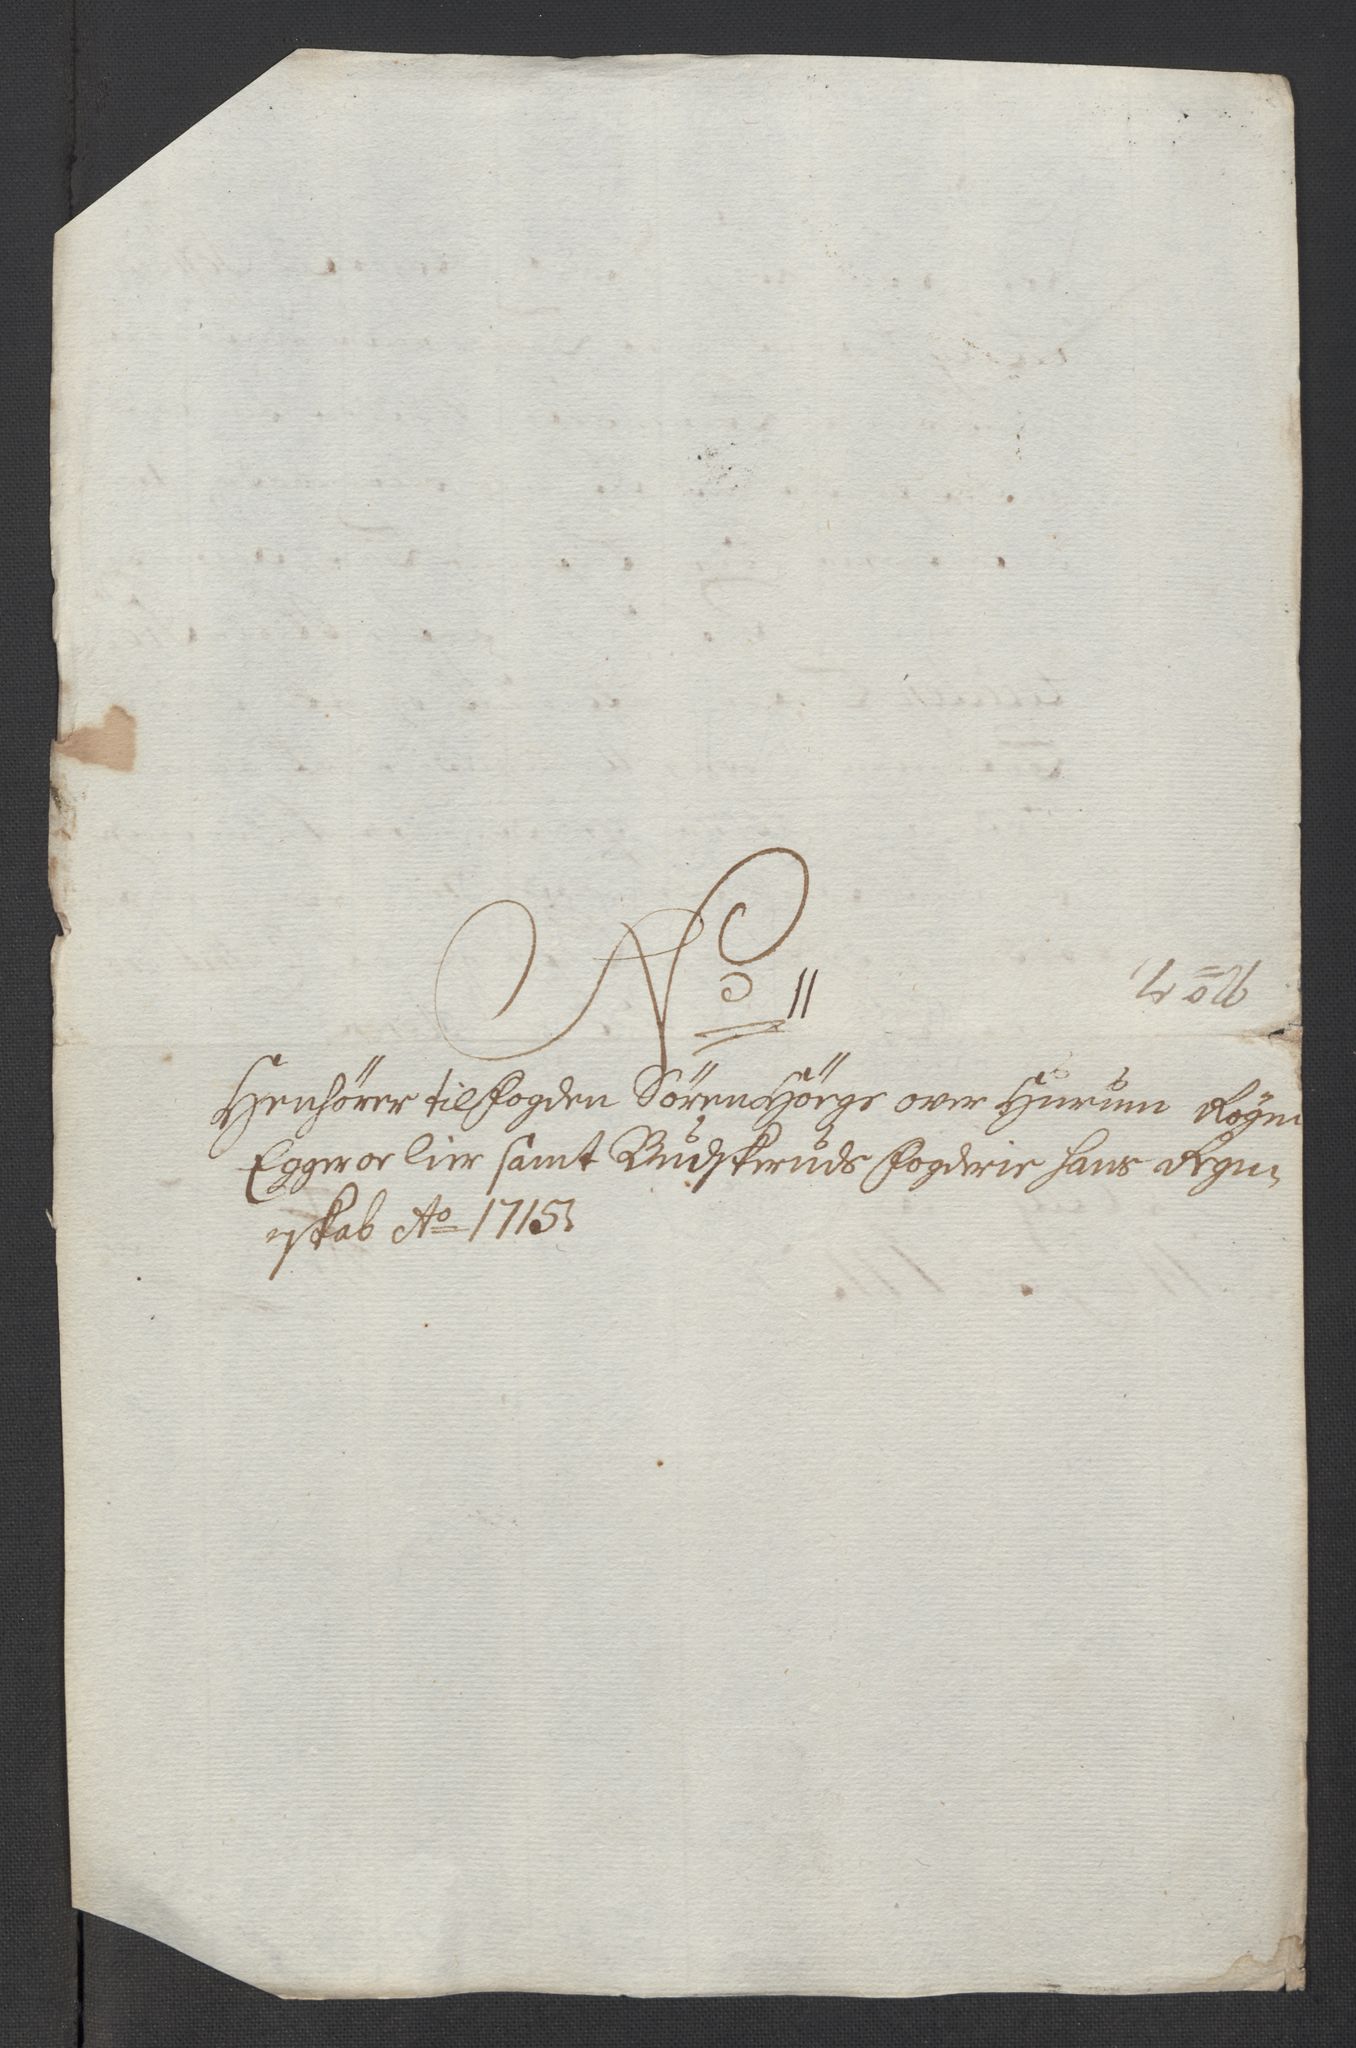 No 11
No 7.
Henhörer til fogden Sören Höegs over Hurum Röyen
Egger oc Lier samt Budskeruds fogderie hans Regen,
skab Ao 1715